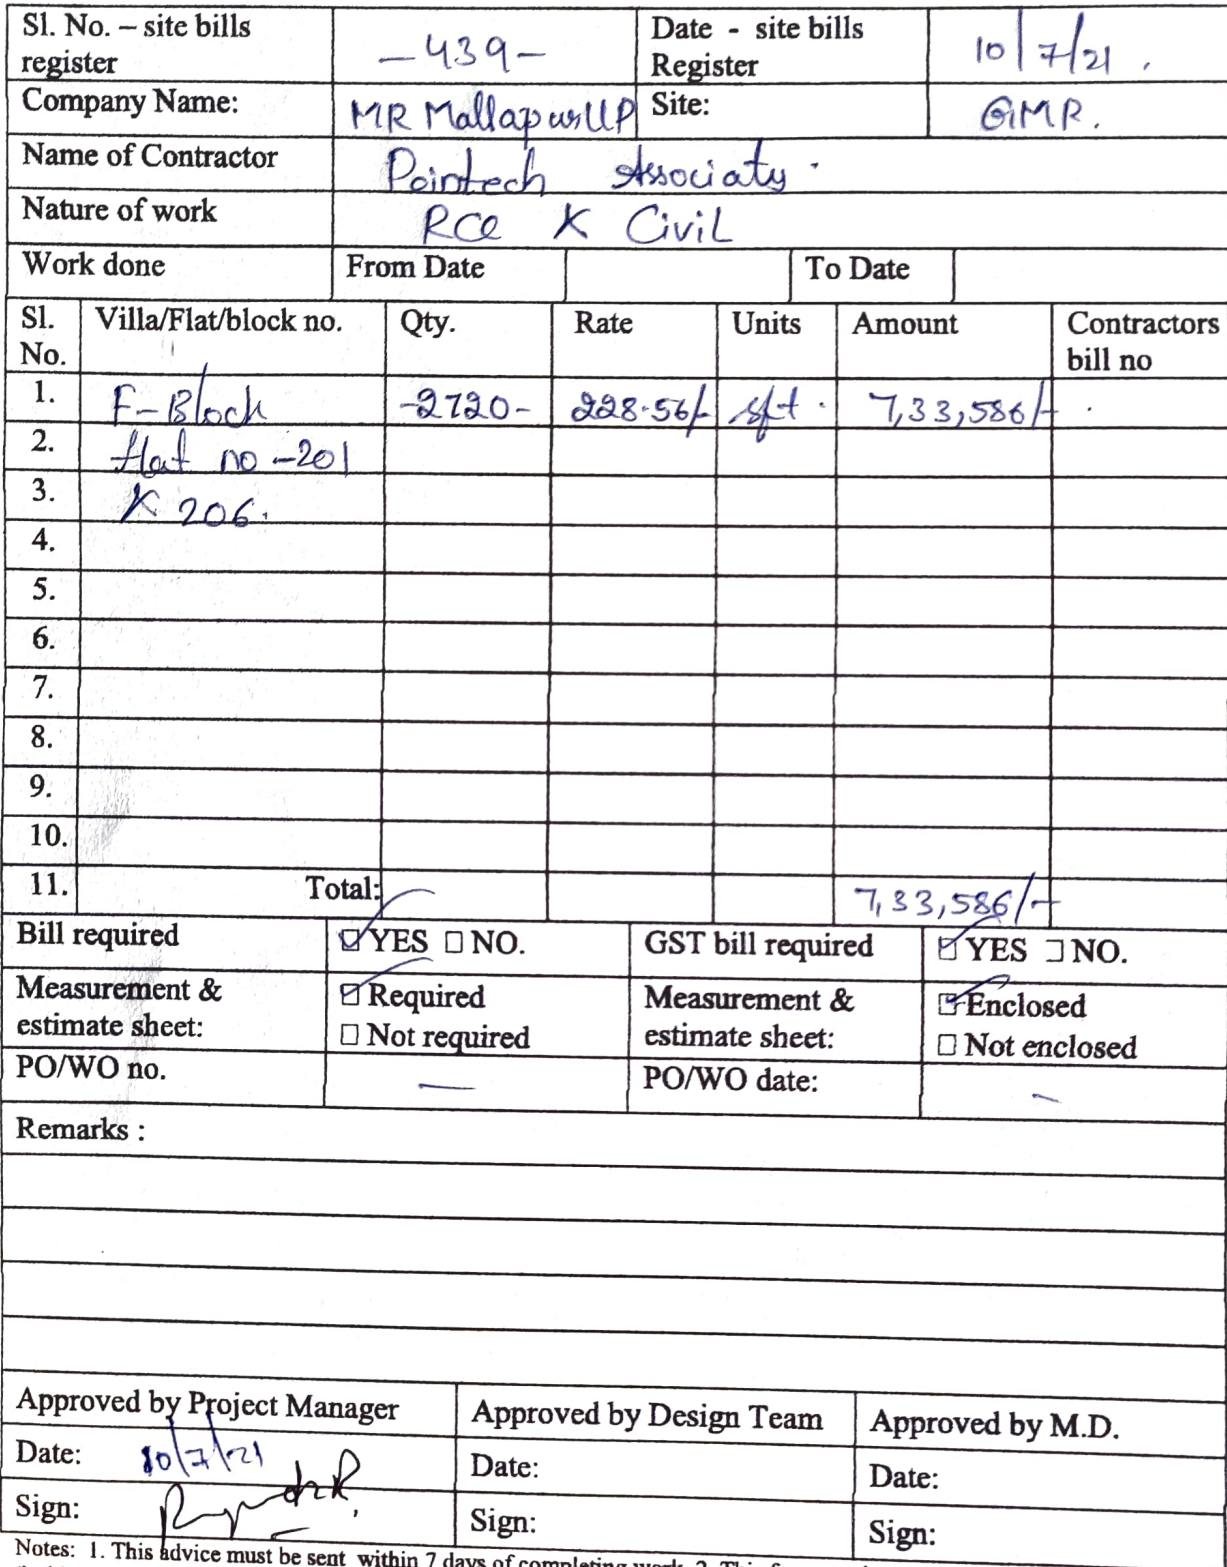 Sl. No. – site bills register -439- Date - site bills Register 10/7/21.
Company Name: MR Mallapur LLP Site: GMR.
Name of Contractor Pointech Associaty.
Nature of work RCC & Civil
Work done From Date To Date
Sl. No. Villa/Flat/block no. Qty. Rate Units Amount Contractors bill no
1. F-Block -2720- 228.56/- sft. 7,33,586/-
2. flat no -201
3. & 206.
4.
5.
6.
7.
8.
9.
10.
11. Total: 7,33,586/-
Bill required ☑ YES ☐ NO. GST bill required ☑ YES ☐ NO.
Measurement & estimate sheet: ☑ Required ☐ Not required Measurement & estimate sheet: ☑ Enclosed ☐ Not enclosed
PO/WO no. — PO/WO date: -
Remarks :
Approved by Project Manager Approved by Design Team Approved by M.D.
Date: 10/7/21 Date: Date:
Sign: Sign: Sign:
Notes: 1. This advice must be sent within 7 days of completing work. 2. This